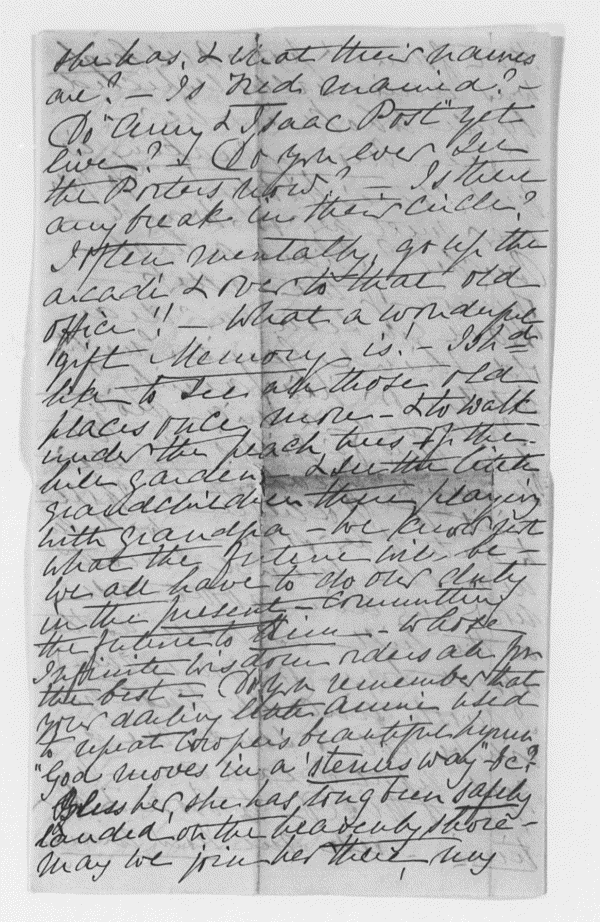 she has, & what their names
are? - Is Fred married? -
Do "Amy & Isaac Post" yet
live? - Do you ever see
the Porters now? - Is there
any break in their circle?
I often mentally, go up the
arcade & over to that old
office!! - What a wonderful
gift Memory is! - I shd
like to see all those old
places once more - & to walk
under the peach trees of the
hill garden, & see the little
grandchildren there playing
with grandpa - we know not
what the future will be -
we all have to do our duty
in the present - committing
the future to Him - whose
Infinite wisdom orders all for
the best - Do you remember that
your darling little Annie used
to repeat Cowper's beautiful hymn
"God moves in a 'sterus way" - &c?
Bless her, she has long been safely
landed on the heavenly shore -
may we join her there, my